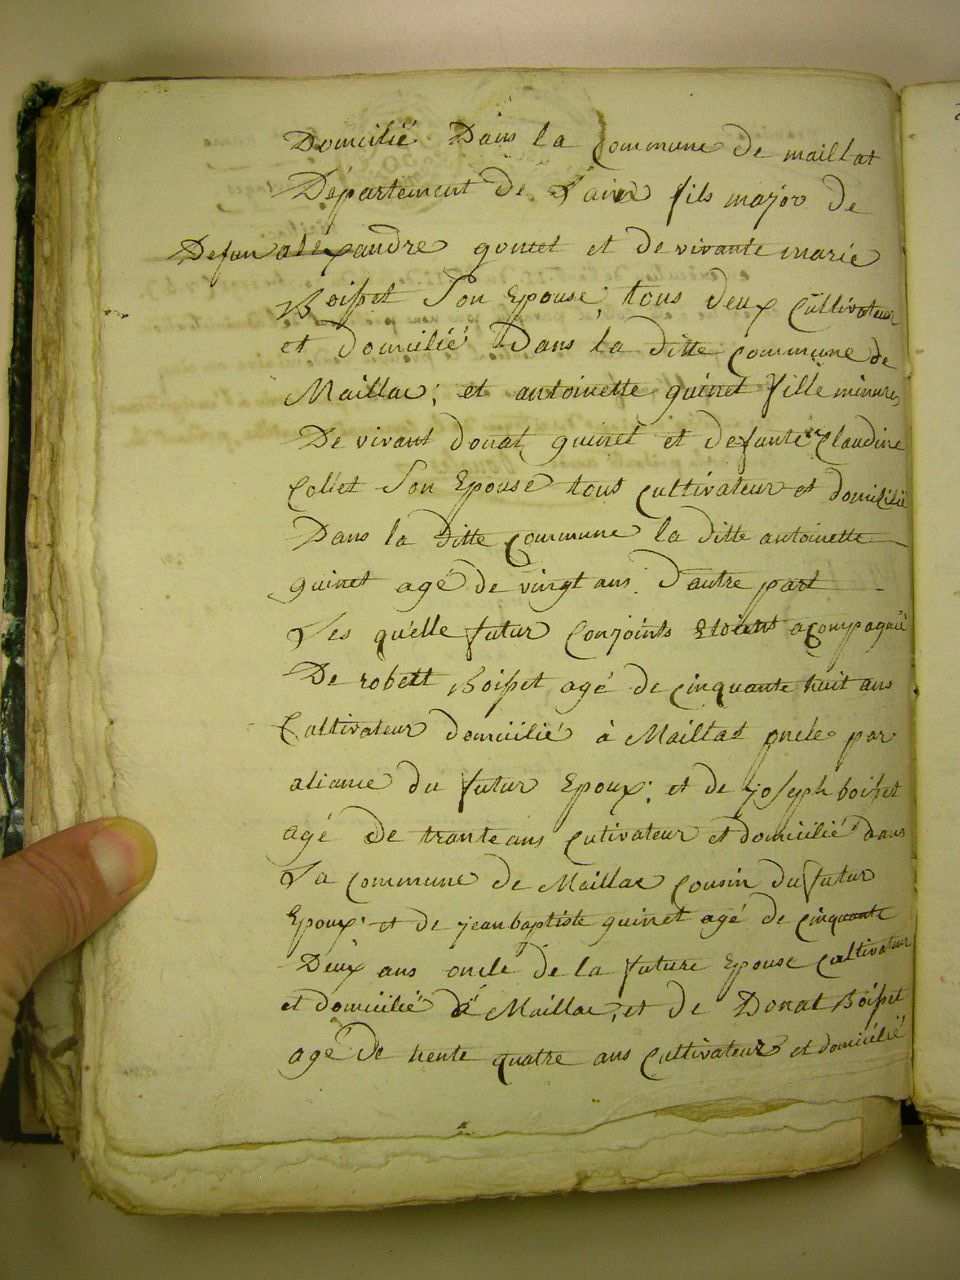 Domicilié Dans la Commune De maillat
Département de Lain fils major De
Defun alexandre gonnet et de vivante marie
Boisset Son Epouse, tous deux Cultivateur
et Domicilié Dans la ditte Commune de
Maillac; et antoinette guinet fille minure
De vivant donat guinet et defunte Claudine
Collet Son Epouse tous Cultivateur et domicilié
Dans la Ditte Commune la ditte antoinette
guinet agé de vingt ans. D'autre part
Les quelle futur Conjoints Etoient acompagnié
De robett Boisset agé de cinquante huit ans
Cultivateur domicilié à Maillat oncle par
aliance du futur Epoux; et de joseph boisset
agé De trante ans Cutivateur et domicilié dans
La Commune de Maillac Cousin du futur
Epoux. et de jean baptiste guinet agé de cinquante
Deux ans oncle de la future Epouse Cultivateur
et domicilié à Maillac, et de Donat Boisset
agé De trente quatre ans Cultivateur et domicilié